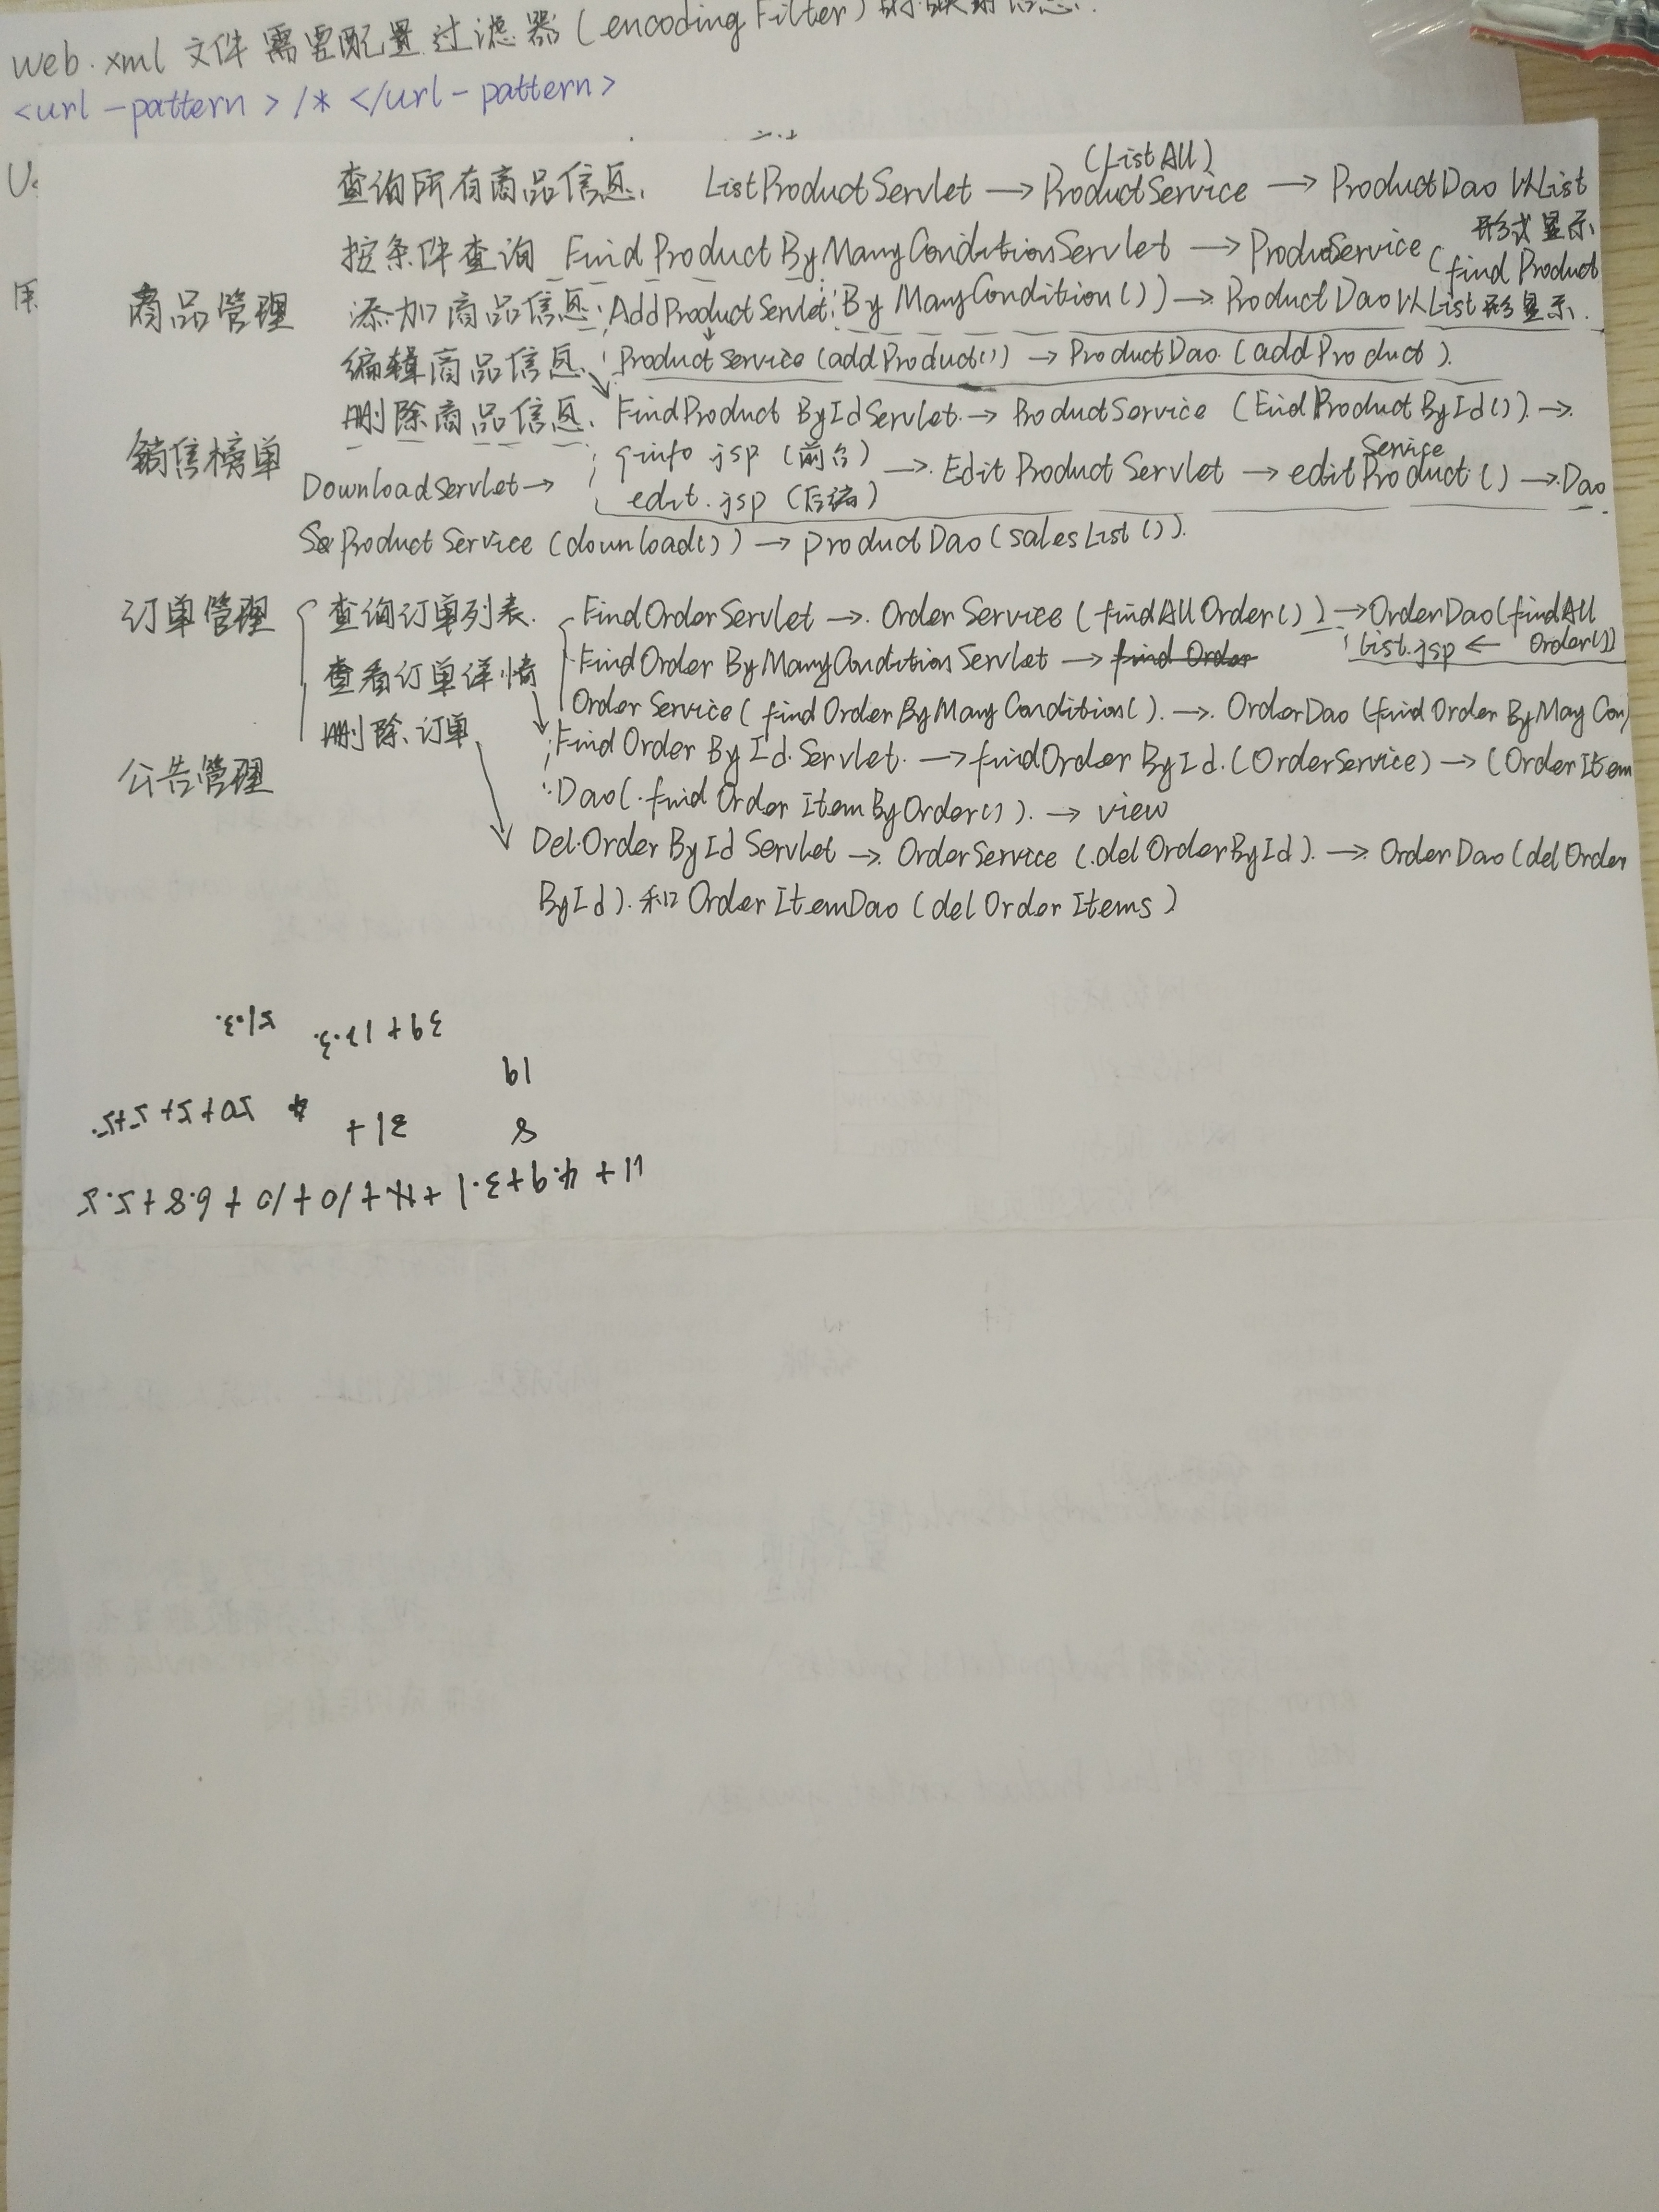 web.xml 文件需要配置过滤器(encodingFilter)的映射信息.
<url-pattern>/*</url-pattern>
(ListAll)
查询所有商品信息. ListProductServlet → ProductService → ProductDao 以List
形式显示
按条件查询 FindProductByManyConditionServlet → ProduService (find Product
商品管理 添加商品信息. AddProductServlet ByManyCondition()) → ProductDao以List形显示.
编辑商品信息. ProductService (addProduct()) → ProductDao (addProduct).
删除商品信息. FindProductByIdServlet → ProductService (FindProductById()) →
销售榜单 info.jsp (前台) → EditProductServlet → editProduct() → Dao
Service
DownloadServlet → edit.jsp (后端)
ProductService (download()) → productDao (salesList()).
订单管理 查询订单列表. FindOrderServlet → OrderService (findAllOrder()) → OrderDao(findAll
list.jsp ← Order())
查看订单详情 FindOrderByManyConditionServlet → find Order
OrderService( findOrderByManyCondition(). → OrderDao (findOrderByMayCon)
删除订单 FindOrderById.Servlet. → findOrderById.(OrderService) → (OrderItem
公告管理 Dao(.findOrderItemByOrder()). → view
Del.OrderByIdServlet → OrderService (.delOrderById). → OrderDao (delOrder
ById).和OrderItemDao (delOrderItems)
11+4.9+3.1
8
31+
19